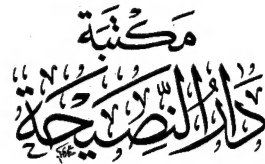 مكتبة
دَارُ النَّصِيحَةِ